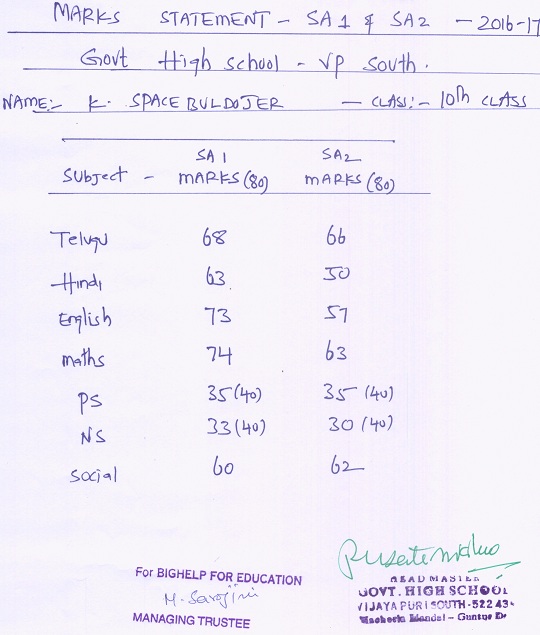 MARKS STATEMENT - SA1 & SA2 - 2016-17
Govt High school - VP south.
NAME:- K. SPACE BULDOJER - CLASS:- 10th CLASS
SA1 SA2
Subject - MARKS (80) MARKS (80)
Telugu 68 66
Hindi 63 50
English 73 57
maths 74 63
PS 35 (40) 35 (40)
NS 33 (40) 30 (40)
Social 60 62
For BIGHELP FOR EDUCATION
M. Sarojini
MANAGING TRUSTEE
HEAD MASTER
GOVT. HIGH SCHOOL
VIJAYAPURI SOUTH-522 43
Macherla Mandal - Guntur Dt